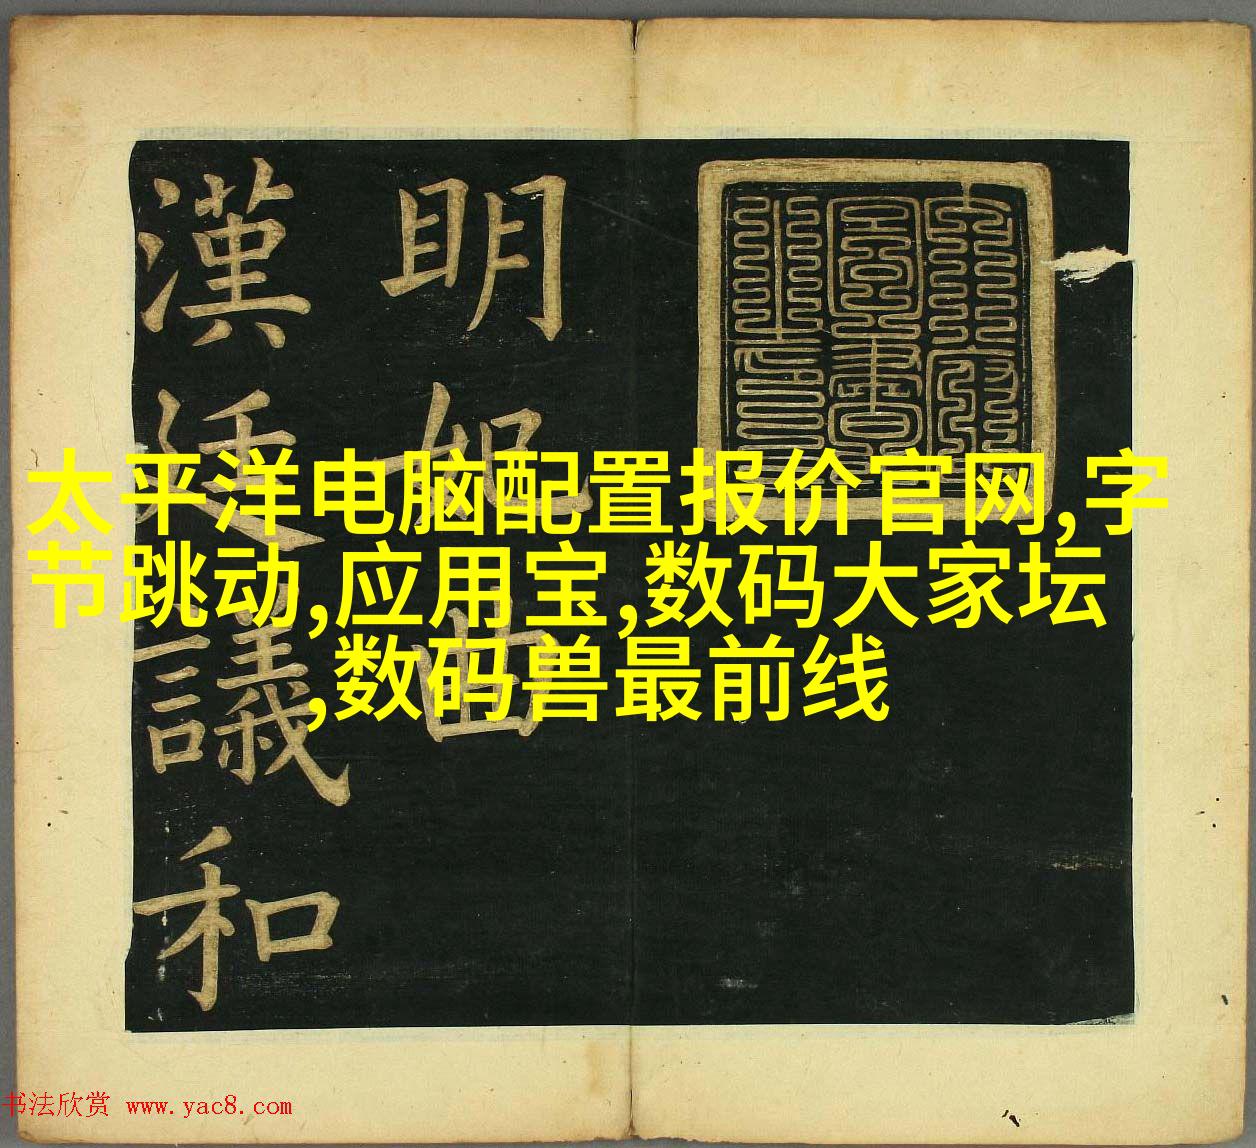 太平洋电脑配置报价官网,字
节跳动,应用宝,数码大家坛
,数码兽最前线
明妃曲
漢廷議和
书法欣赏 www.yac8.com